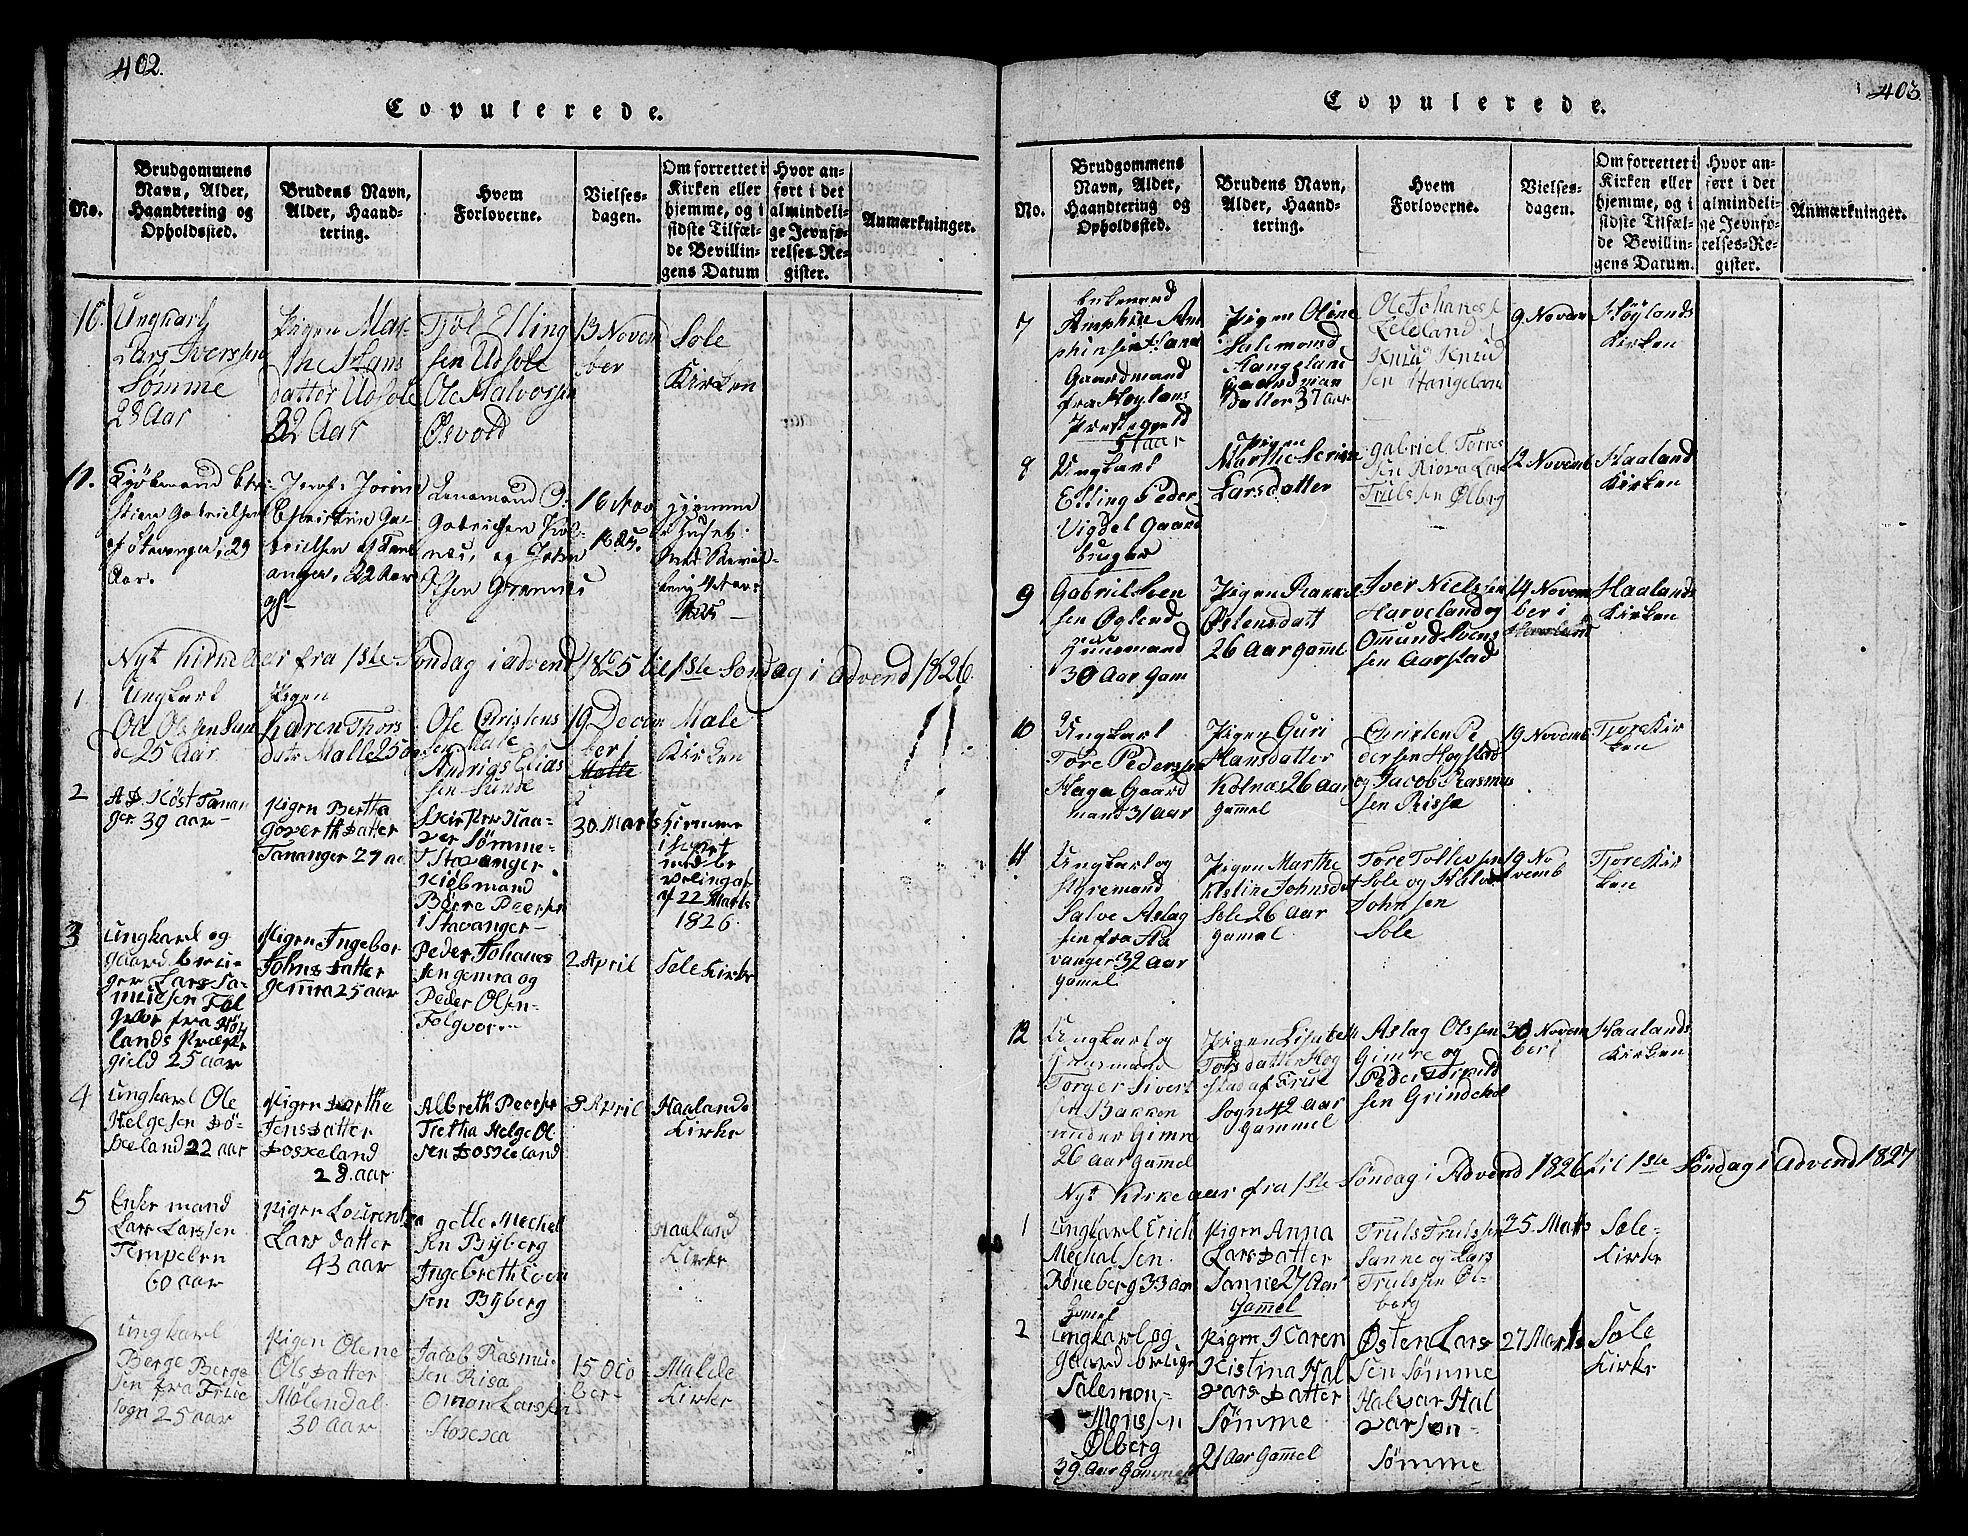 402.
Copulerede.
No.
Brudgommens
Navn, Alder,
Haandtering og
Opholdssted.
Brudens Navn,
Alder, Haand-
tering.
Hvem
Forloverne.
Vielses-
dagen.
Om forrettet i
Kirken eller
hjemme, og i
sidste Tilfæl-
de Bevillin-
gens Datum
Hvor an-
ført i det
almindeli-
ge Jevnfø-
relses-Re-
gister.
Anmærkninger.
10.
Ungkarl
Lars Iversen
Sømme
28 Aar
Pigen Mar-
the Hans
datter Udsole
32 Aar
Elling
sen Udsole
Ole Halvorsen
Øsvold
13 Novem
ber
Sole
Kirken
11.
Kjøbmand
Gabrielsen
Stavanger, 29
Aar.
Christine Ga-
brielsen
22 Aar
Gabrielsen
og John
16 Nov
1825.
hjemme
i Huset
Nyt Kirkeaar fra 1ste Søndag i Advend 1825 til 1ste Søndag i Advend 1826.
1
Ungkarl
Ole Olssen Sun
de 25 Aar
Pigen
Karen Thors
datr Malle 25
Ole Christens
sen Male
Andrias Elias
sen Sunde
19 Decem
ber i
Malle
Male
Kirken
2
Høst Tanan
ger 39 aar
Pigen Bertha
Goverth Datter
Tananger 27 aa
Skipper Haa
ver Sømme
i Stavanger
Kiøbmand
Børre Peersen
i Stavanger
30. Marts
Hiemme
af 22 Marts
1826.
3
ungkarl og
gaard bru-
ger Lars Sa-
muelsen Føl
fra Høy
lands Præste
gield 25 aar
Pigen Ingebor
Johns Datter
gemra 25 aar
Peder Johanes
sen gemra og
Peder Olsen
Følgvor
2 April
Sole Kirke
4
ungkarl Ole
Helgesen Dø-
skeland 22 aar
Pigen Dorthe
Jens Datter
Doskeland
28. aar
Albreth Peerse
Helge Ol
sen Doskeland
8 April
Haalands
Kirke
5
Enke mand
Lars Larssen
Tempelen
60 aar
Pigen Lourentza
Lars datter
43 aar
gelle Mechel
sen Byberg
Ingebreth Even
sen Byberg
Haaland
Kirke
ungkarl
Berge Berge
sen fra
sogn 25 aar
Pigen Olene
Ols Datter
Mølendal
30 aar
Jacob Rasmu-
sen Risa
Omon Larssen
15 Octo
ber
Malde
Kirke
403.
Copulerede.
No.
Brudgommens
Navn, Alder,
Haandtering og
Opholdssted.
Brudens Navn,
Alder, Haand-
tering.
Hvem
Forloverne.
Vielses-
dagen.
Om forrettet i
Kirken eller
hjemme, og i
sidste Tilfæl-
de Bevillin-
gens Datum.
Hvor an-
ført i det
almindeli-
ge Jevnfø-
relses-Re-
gister.
Anmærkninger.
7
Enkemand
Gaardmand
fra Høylans
Prestegield
51 aar
Pigen Oline
Salemonsd
Hangeland
Gaardman
datter 37 aar
Ole Johanss
Leleland
Knud Knud
sen Hangelan
9 Novem
Høylands
Kirken
8
Ungkarl
Elling Peder
Vigdel Gaard
bruger
Pigen
Marthe Serine
Larsdatter
Gabriel Torres
sen Lars
Trulssen Ølberg
12 Novemb
Haaland
Kirken
9
Gabriel Sven
sen Øglend
Huusmand
30 Aar Gam
Pigen
Østensdatt
26 Aar gamml
Iver Nielssen
Harveland og
Omund Svens
sen Aarstad
14 Novem
ber i
Haalands
Kirken
10
Ungkarl
Tore Pedersen
Haga Gaard
mand 31 Aar
Pigen Guri
Hansdatter
Kolnæs 26 Aar
gammel
Christen Pe
dersen Hogstad
og Jacob Rasmus
sen Rissa
19 Novemb
Tjore Kir
ken
11
Ungkarl og
Styremand
Salve Aslag
sen fra Ha
vanger 32 Aar
gamel
Pigen Marthe
Kistine Johnsdat
Sole 26 Aar
gamel
Tore Tollevsen
Sole og Halvor
Johnsen
Sole
19 No
vemb
Tjore Kir
ken
12
Ungkarl og
Huusmand
Torger Sivert
sen Bakken
under Gimre
26 Aar gammel
Pigen Lisabeth
Torsdatter Hog
stad
Sogn 42 Aar
gammel
Aslag Olssen
Gimre og
Peder
sen Grindehei
30 Novem
ber i
Haalands
Kirken
Nyt Kirkeaar fra 1ste Søndag i Advend 1826 til 1ste Søndag i Advend 1827
1
ungkarl Erich
Mechalsen
Røneberg 33 aar
Gamel
Pigen Anna
Lars Datter
Sanne 27 Aar
Gamel
Truls Trulssen
Sanne og Lars
Trulssen Øl-
berg
25. Marts
Sole-
Kirke
2
ungkarl og
gaard bruger
Salemon
Monssen
Ølberg
39 Aar Gammel
Pigen Karen
Kistina Hal
vars Datter
Sømme
21 Aar Gamel
Østen Lars
sen Sømme
Halvar Hal
varsen
Sømme
27 Marts
Sole
Kirke